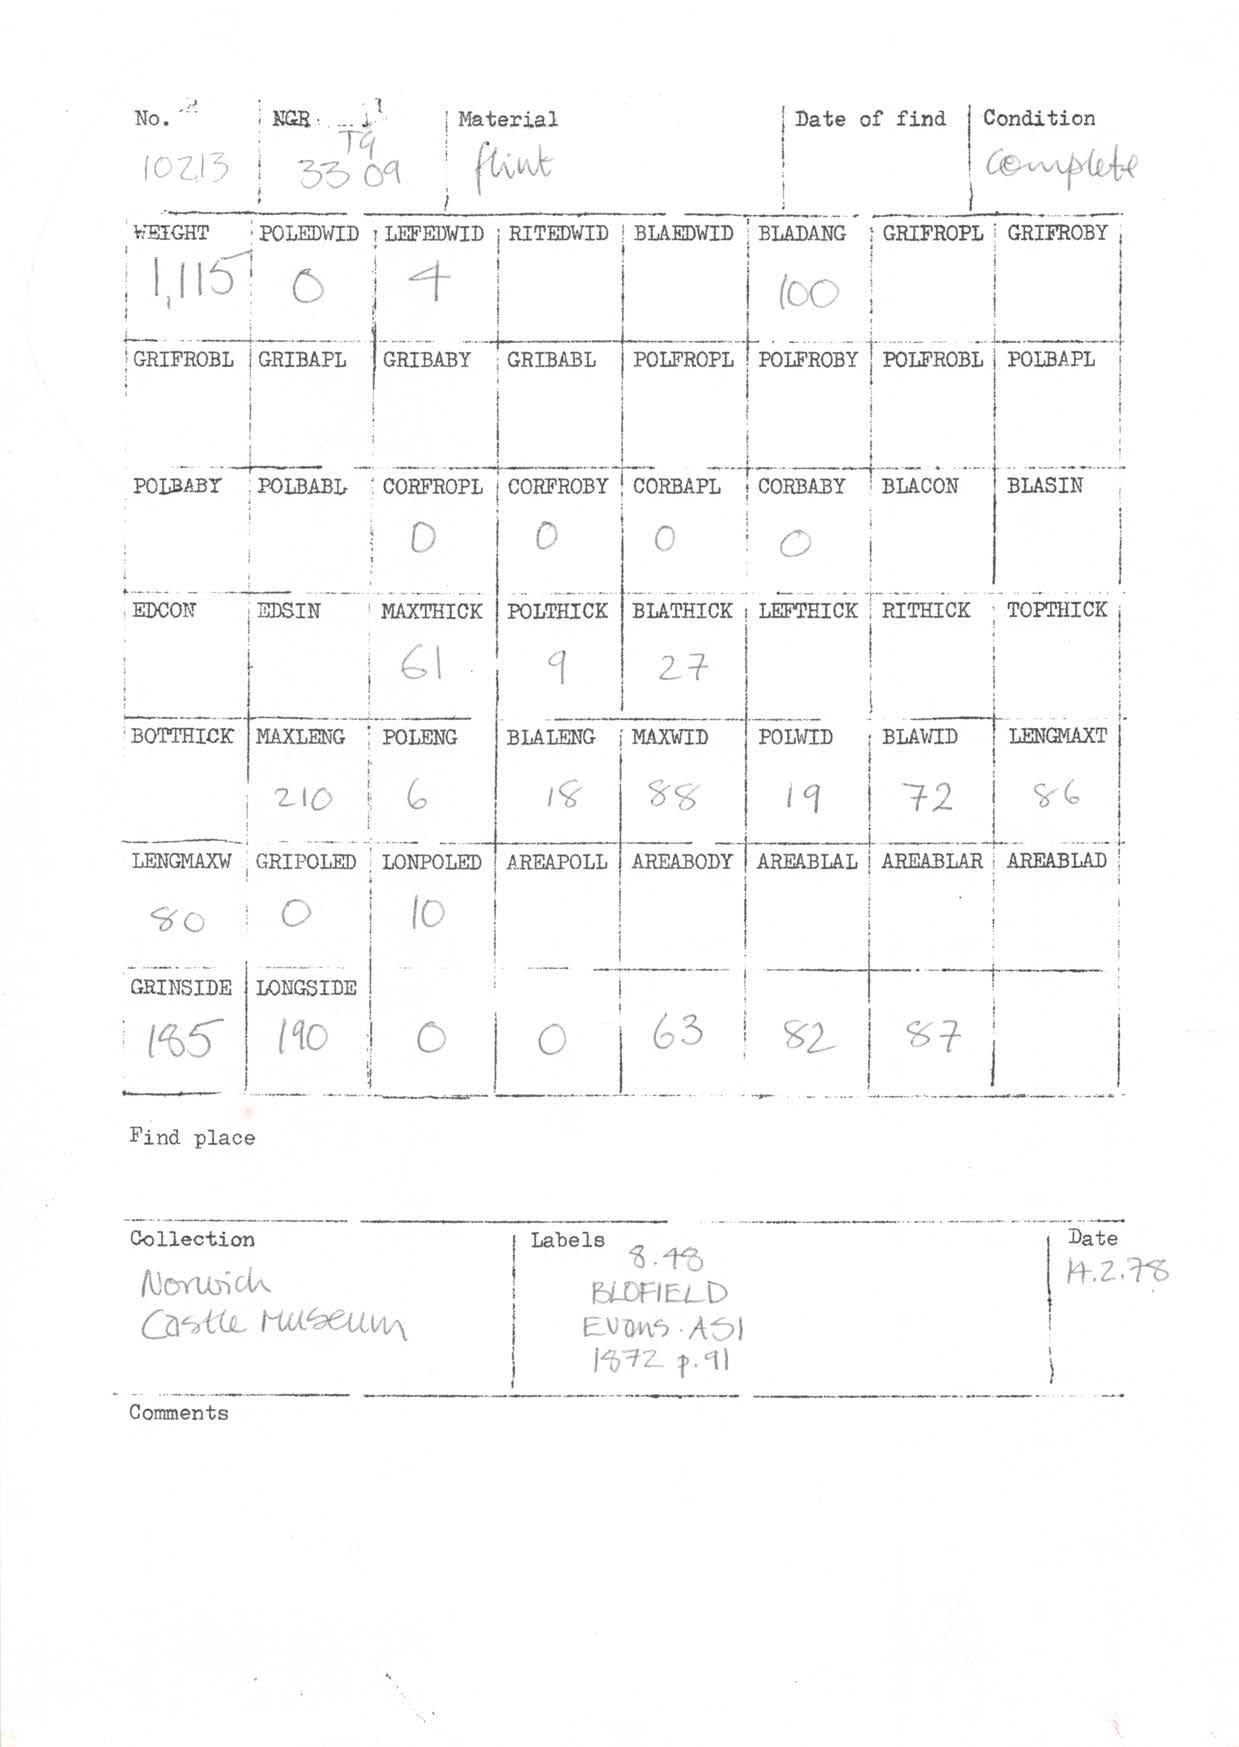 No. NGR Material Date of find Condition
TG
10213 33 09 flint complete
WEIGHT POLEDWID LEFEDWID RITEDWID BLAEDWID BLADANG GRIFROPL GRIFROBY
1,115 0 4 100
GRIFROBL GRIBAPL GRIBABY GRIBABL POLFROPL POLFROBY POLFROBL POLBAPL
POLBABY POLBABL CORFROPL CORFROBY CORBAPL CORBABY BLACON BLASIN
0 0 0 0
EDCON EDSIN MAXTHICK POLTHICK BLATHICK LEFTHICK RITHICK TOPTHICK
61 9 27
BOTTHICK MAXLENG POLENG BLALENG MAXWID POLWID BLAWID LENGMAXT
210 6 18 88 19 72 86
LENGMAXW GRIPOLED LONPOLED AREAPOLL AREABODY AREABLAL AREABLAR AREABLAD
80 0 10
GRINSIDE LONGSIDE
185 190 0 0 63 82 87
Find place
Collection Labels Date
8.48
Norwich BLOFIELD 14.2.78
Castle Museum Evans. ASI
1872 p.91
Comments